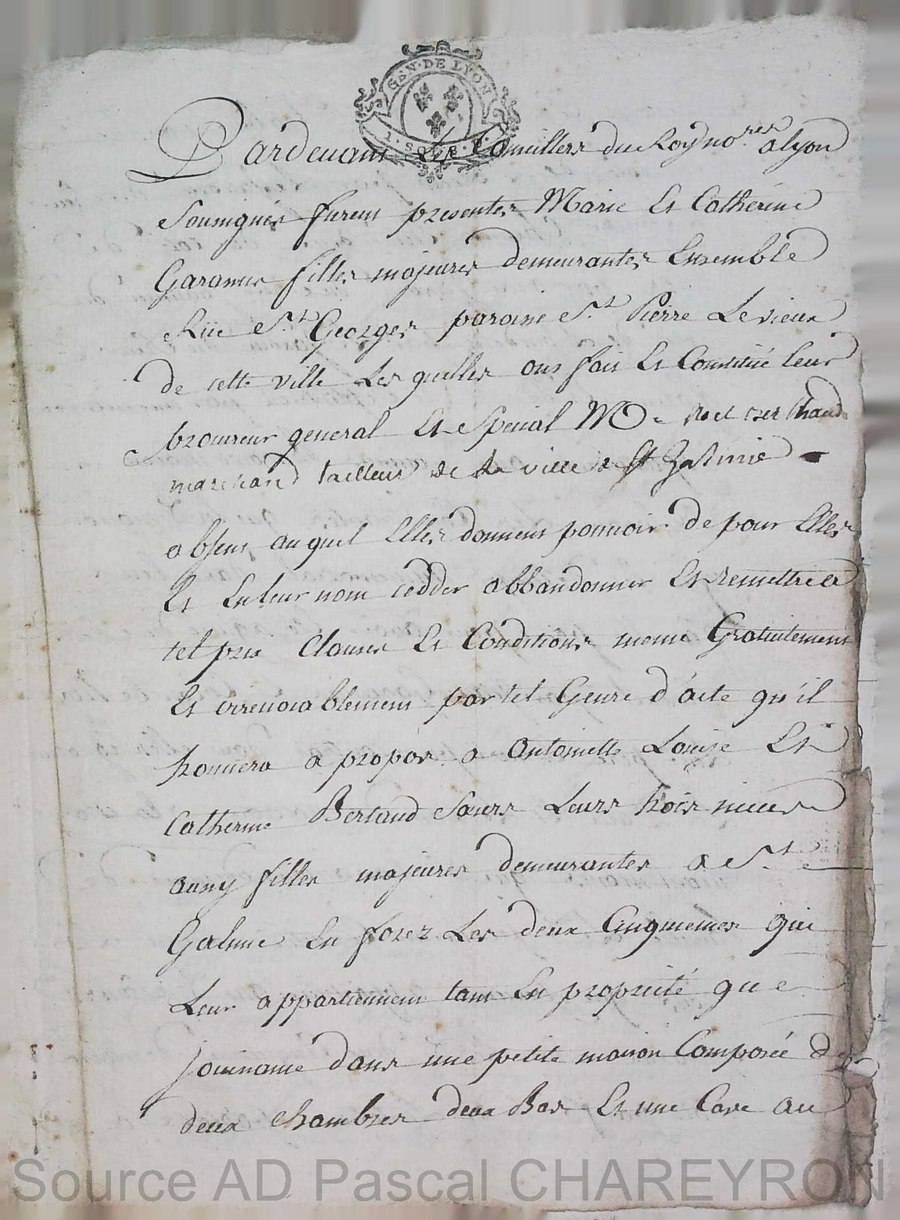 GEN. DE LYON
Pardevant Les Conseillers du Roy no.res a lyon
Soussignés furent presentes Marie Et Catherine
Garamis filles majeures demeurantes Ensemble
Rüe St. Georges paroisse St. Pierre Levieux
de cette ville Lesquelles ont fait Et Constitué leur
procureur general Et Special M
marchand tailleur de la ville de St Galmié
absent auquel Elles donnent pouvoir de pour Elles
Et En leur nom cedder abbandonner Et remettre a
tel prix Clauses Et Conditions meme Gratuitement
Et irrevocablement par tel Genre d'acte qu'il
trouvera a propos a Antoinette Louise Et
Catherine Bertaud Sœurs Leurs trois nieces
aussy filles majeures demeurantes a St.
Galmie En forez Les deux Cinquiemes qui
Leur appartiennent tant En propriété que
jouissance dans une petite maison Composée de
deux chambres deux Bas Et une Cave au
Source AD Pascal CHAREYRON